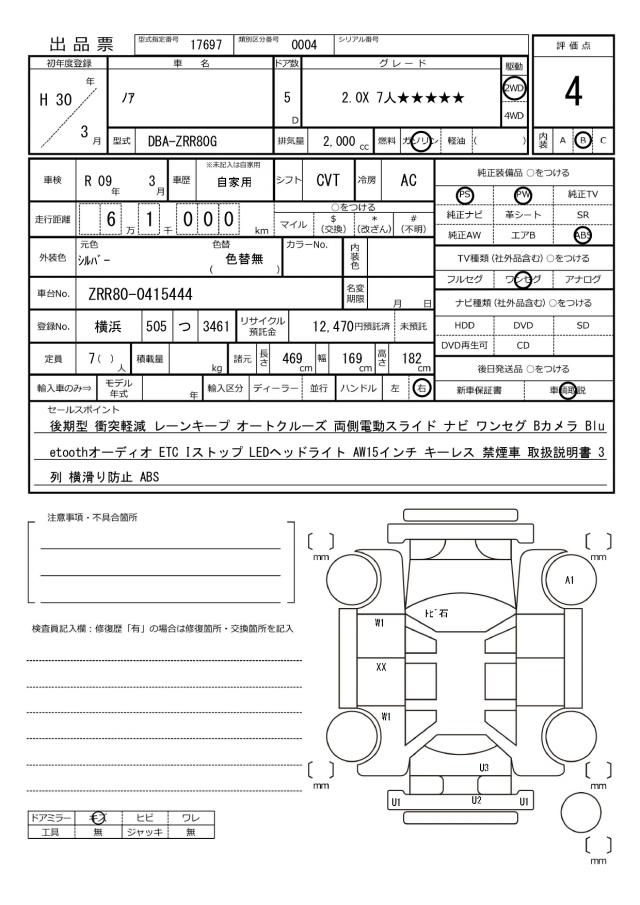 出品票
型式指定番号 17697 類別区分番号 0004 シリアル番号
初年度登録 車 名 ドア数 グレード 駆動 評価点
H 30 年 3 月 ノア 5 D 2.0X 7人★★★★★ 2WD 4WD 4
型式 DBA-ZRR80G 排気量 2,000 cc 燃料 ガソリン 軽油 ( ) 内装 A B C
車検 R 09 年 3 月 車歴 ※未記入は自家用 自家用 シフト CVT 冷房 AC
純正装備品 ○をつける
PS PW 純正TV
純正ナビ 革シート SR
純正AW エアB ABS
走行距離 6 万 1 千 0 0 0 km ○をつける マイル $ (交換) * (改ざん) # (不明)
外装色 元色 シルバー 色替 ( 色替無 ) カラーNo. 内装色
TV種類 (社外品含む) ○をつける
フルセグ ワンセグ アナログ
車台No. ZRR80-0415444 名変期限 月 日
ナビ種類 (社外品含む) ○をつける
HDD DVD SD
DVD再生可 CD
登録No. 横浜 505 つ 3461 リサイクル預託金 12,470円預託済 未預託
定員 7 ( ) 人 積載量 kg 諸元 長さ 469 cm 幅 169 cm 高さ 182 cm
後日発送品 ○をつける
新車保証書 車輌取説
輸入車のみ⇒ モデル年式 年 輸入区分 ディーラー 並行 ハンドル 左 右
セールスポイント
後期型 衝突軽減 レーンキープ オートクルーズ 両側電動スライド ナビ ワンセグ Bカメラ Blu
etoothオーディオ ETC Iストップ LEDヘッドライト AW15インチ キーレス 禁煙車 取扱説明書 3
列 横滑り防止 ABS
注意事項・不具合箇所
検査員記入欄：修復歴「有」の場合は修復箇所・交換箇所を記入
[ ] mm [ ] mm
A1
トビ石
W1
XX
W1
U3
[ ] mm [ ] mm
U1 U2 U1
[ ] mm
ドアミラー キズ ヒビ ワレ
工具 無 ジャッキ 無